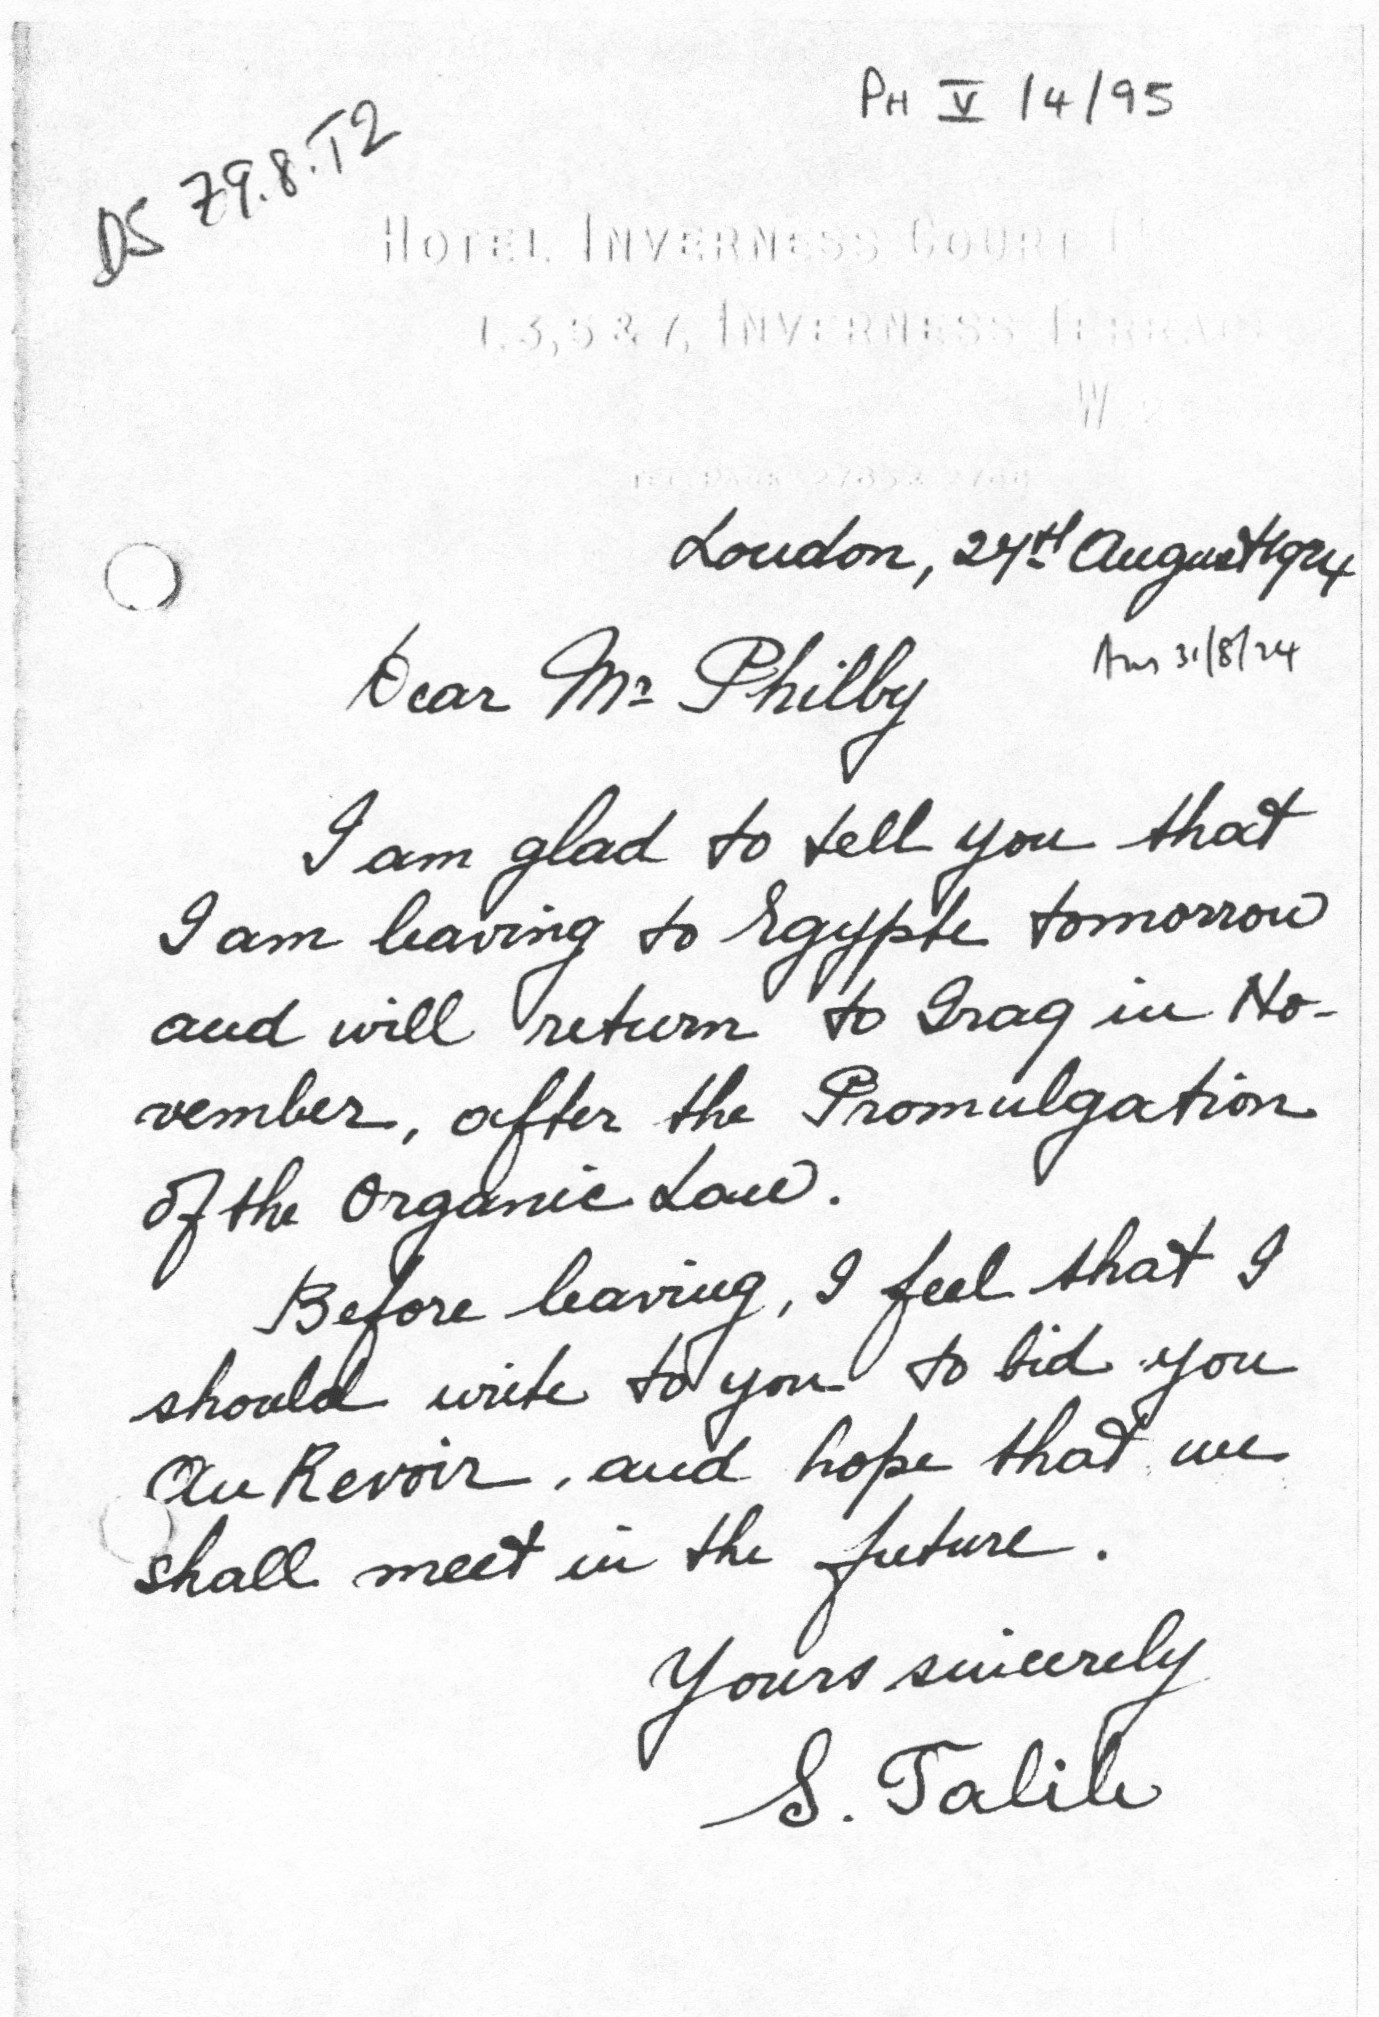 PH V /4/95
DS 79.8.T2
HOTEL INVERNESS COURT
1, 3, 5 & 7, INVERNESS TERRACE
W.2
London, 27th August 1924
Ans 31/8/24
Dear Mr Philby
I am glad to tell you that
I am leaving to Egypte tomorrow
and will return to Iraq in No-
vember, after the Promulgation
of the Organic Law.
Before leaving, I feel that I
should write to you to bid you
Au Revoir, and hope that we
shall meet in the future.
Yours sincerely
S. Talib